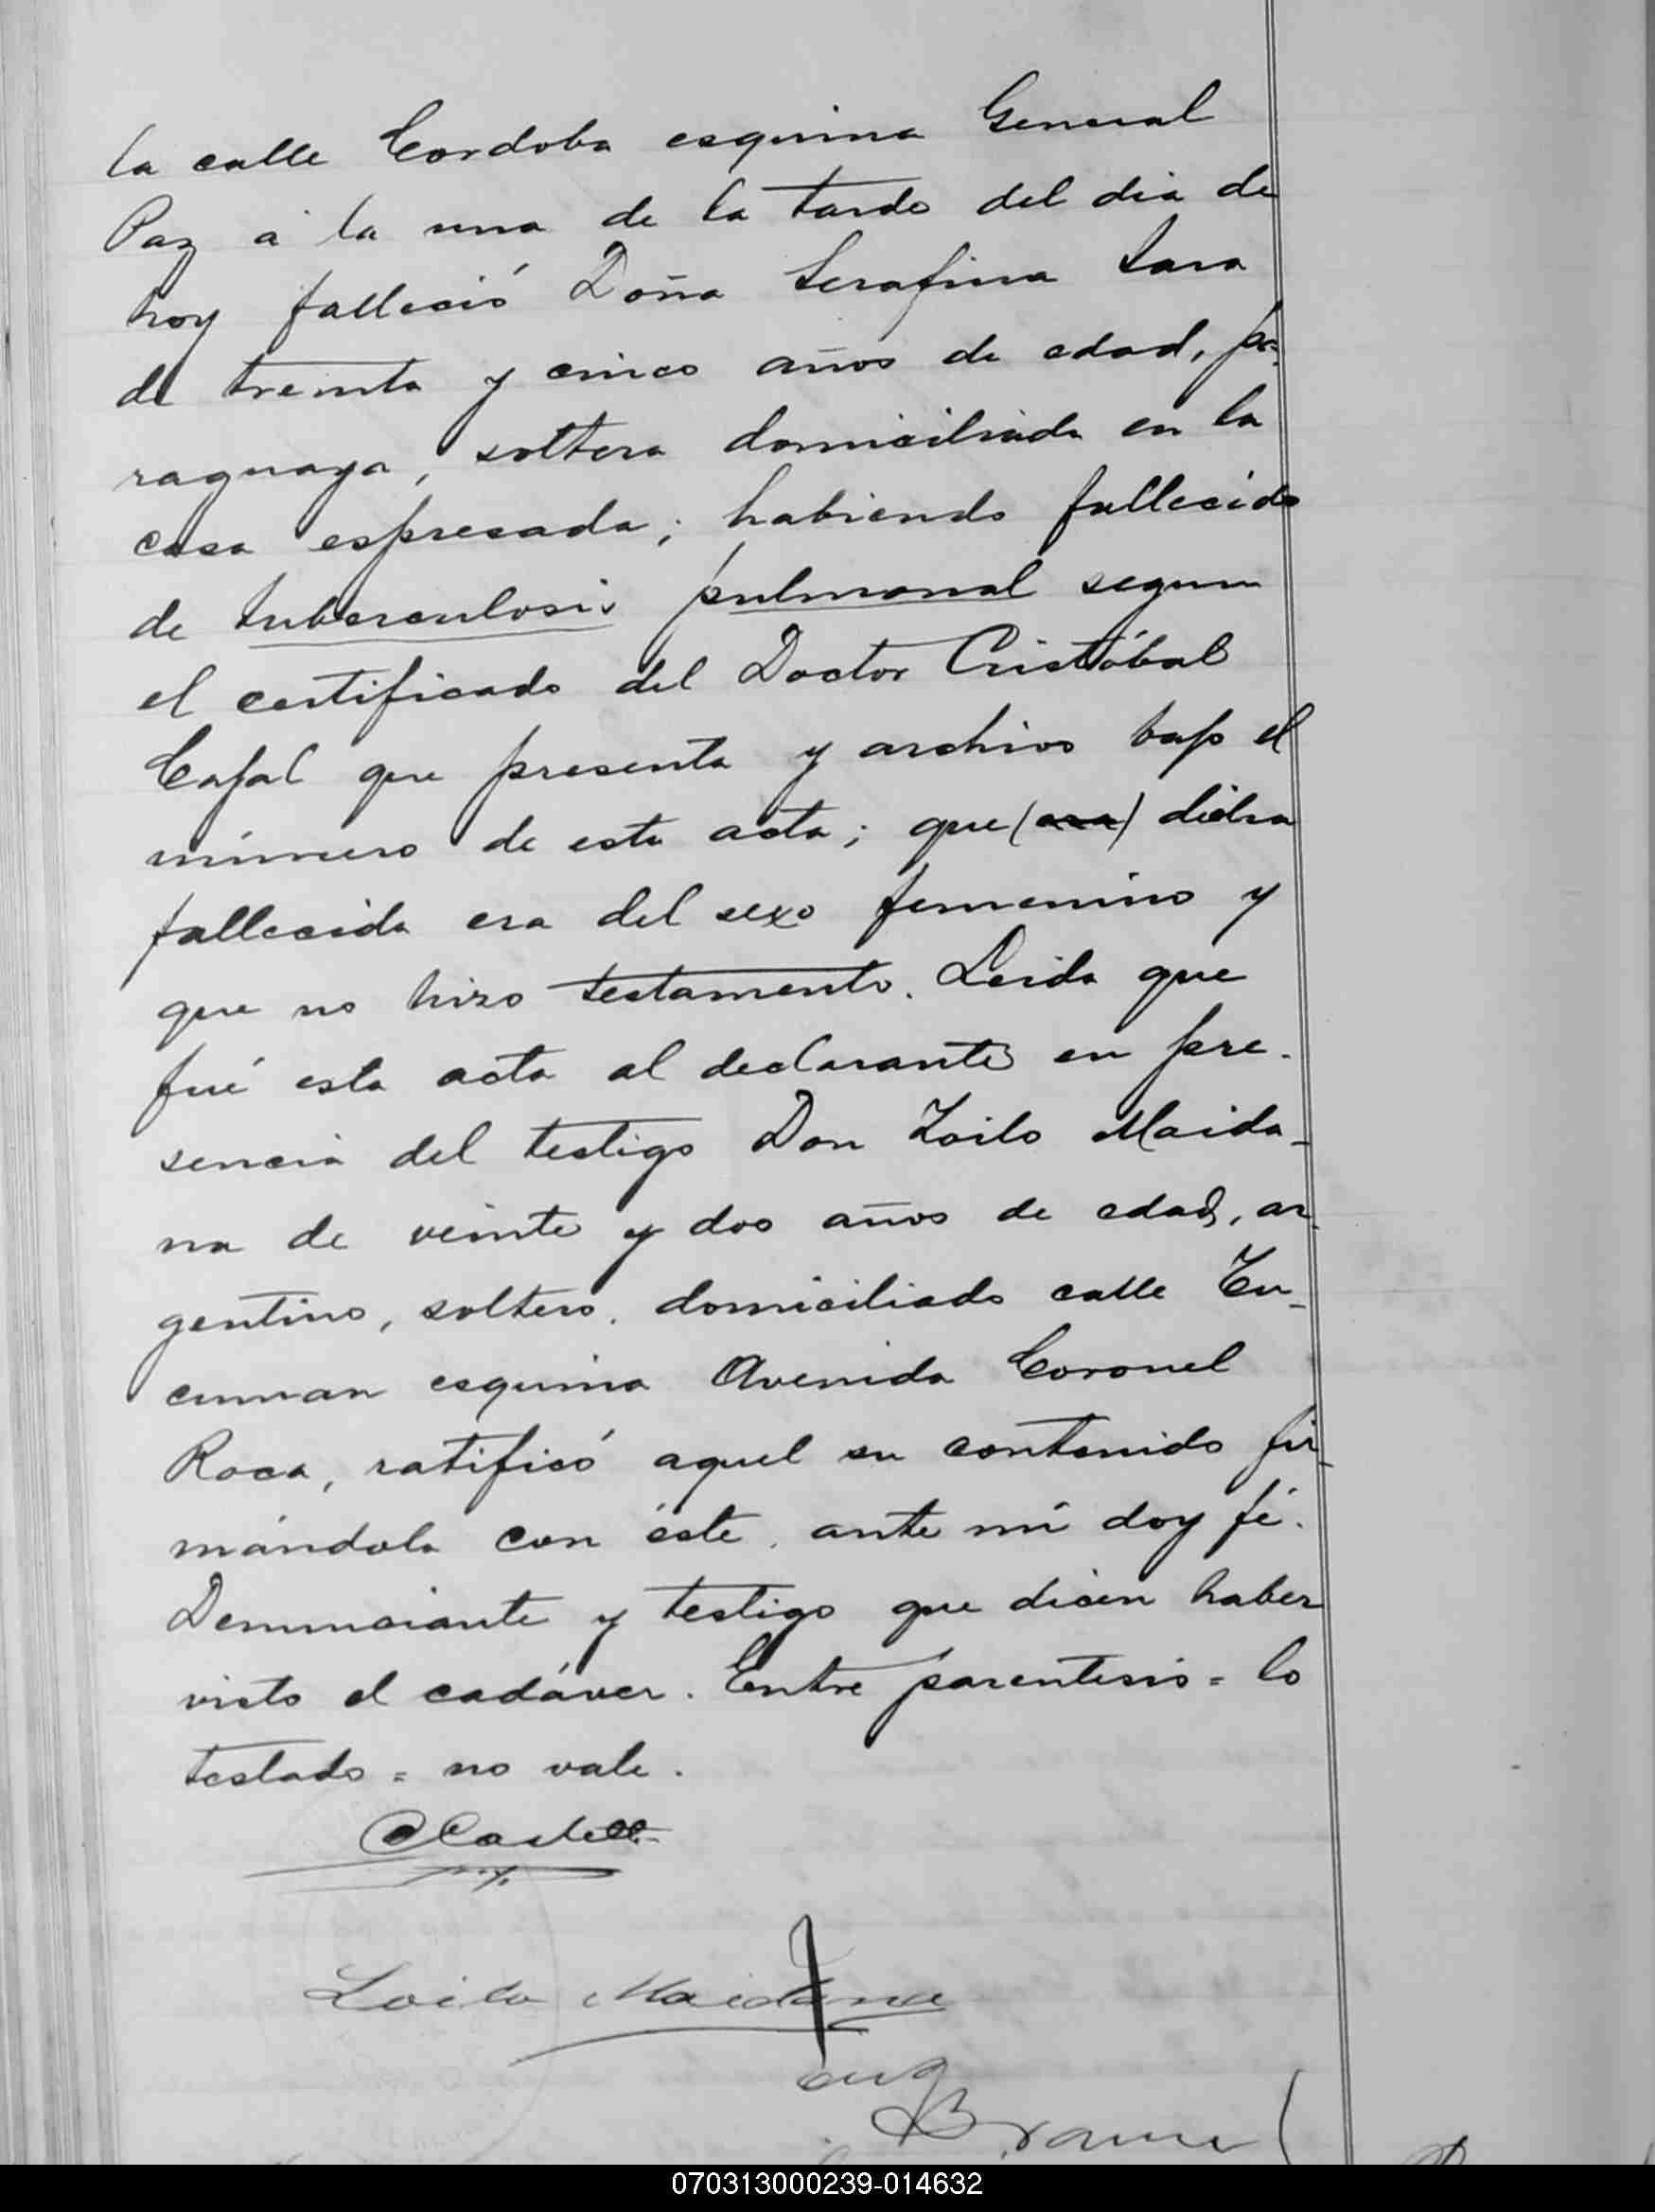 la calle Cordoba esquina General
Paz á la una de la tarde del dia de
hoy falleció Doña Serafina Sara
de treinta y cinco años de edad, pa-
raguaya, soltera domiciliada en la
casa espresada; habiendo fallecido
de tuberculosis pulmonal segun
el certificado del Doctor Cristóbal
Cajal que presenta y archivo bajo el
número de esta acta; que (era) dicha
fallecida era del sexo femenino y
que no hizo testamento. Leida que
fué esta acta al declarante en pre-
sencia del testigo Don Zoilo Maida-
na de veinte y dos años de edad, ar-
gentino, soltero, domiciliado calle Tu-
cuman esquina Avenida Coronel
Roca, ratificó aquel su contenido fir-
mándola con éste, ante mí doy fé.
Denunciante y testigo que dicen haber
visto el cadáver. Entre parentesis = lo
testado = no vale.
Zoilo Maidana
070313000239-014632